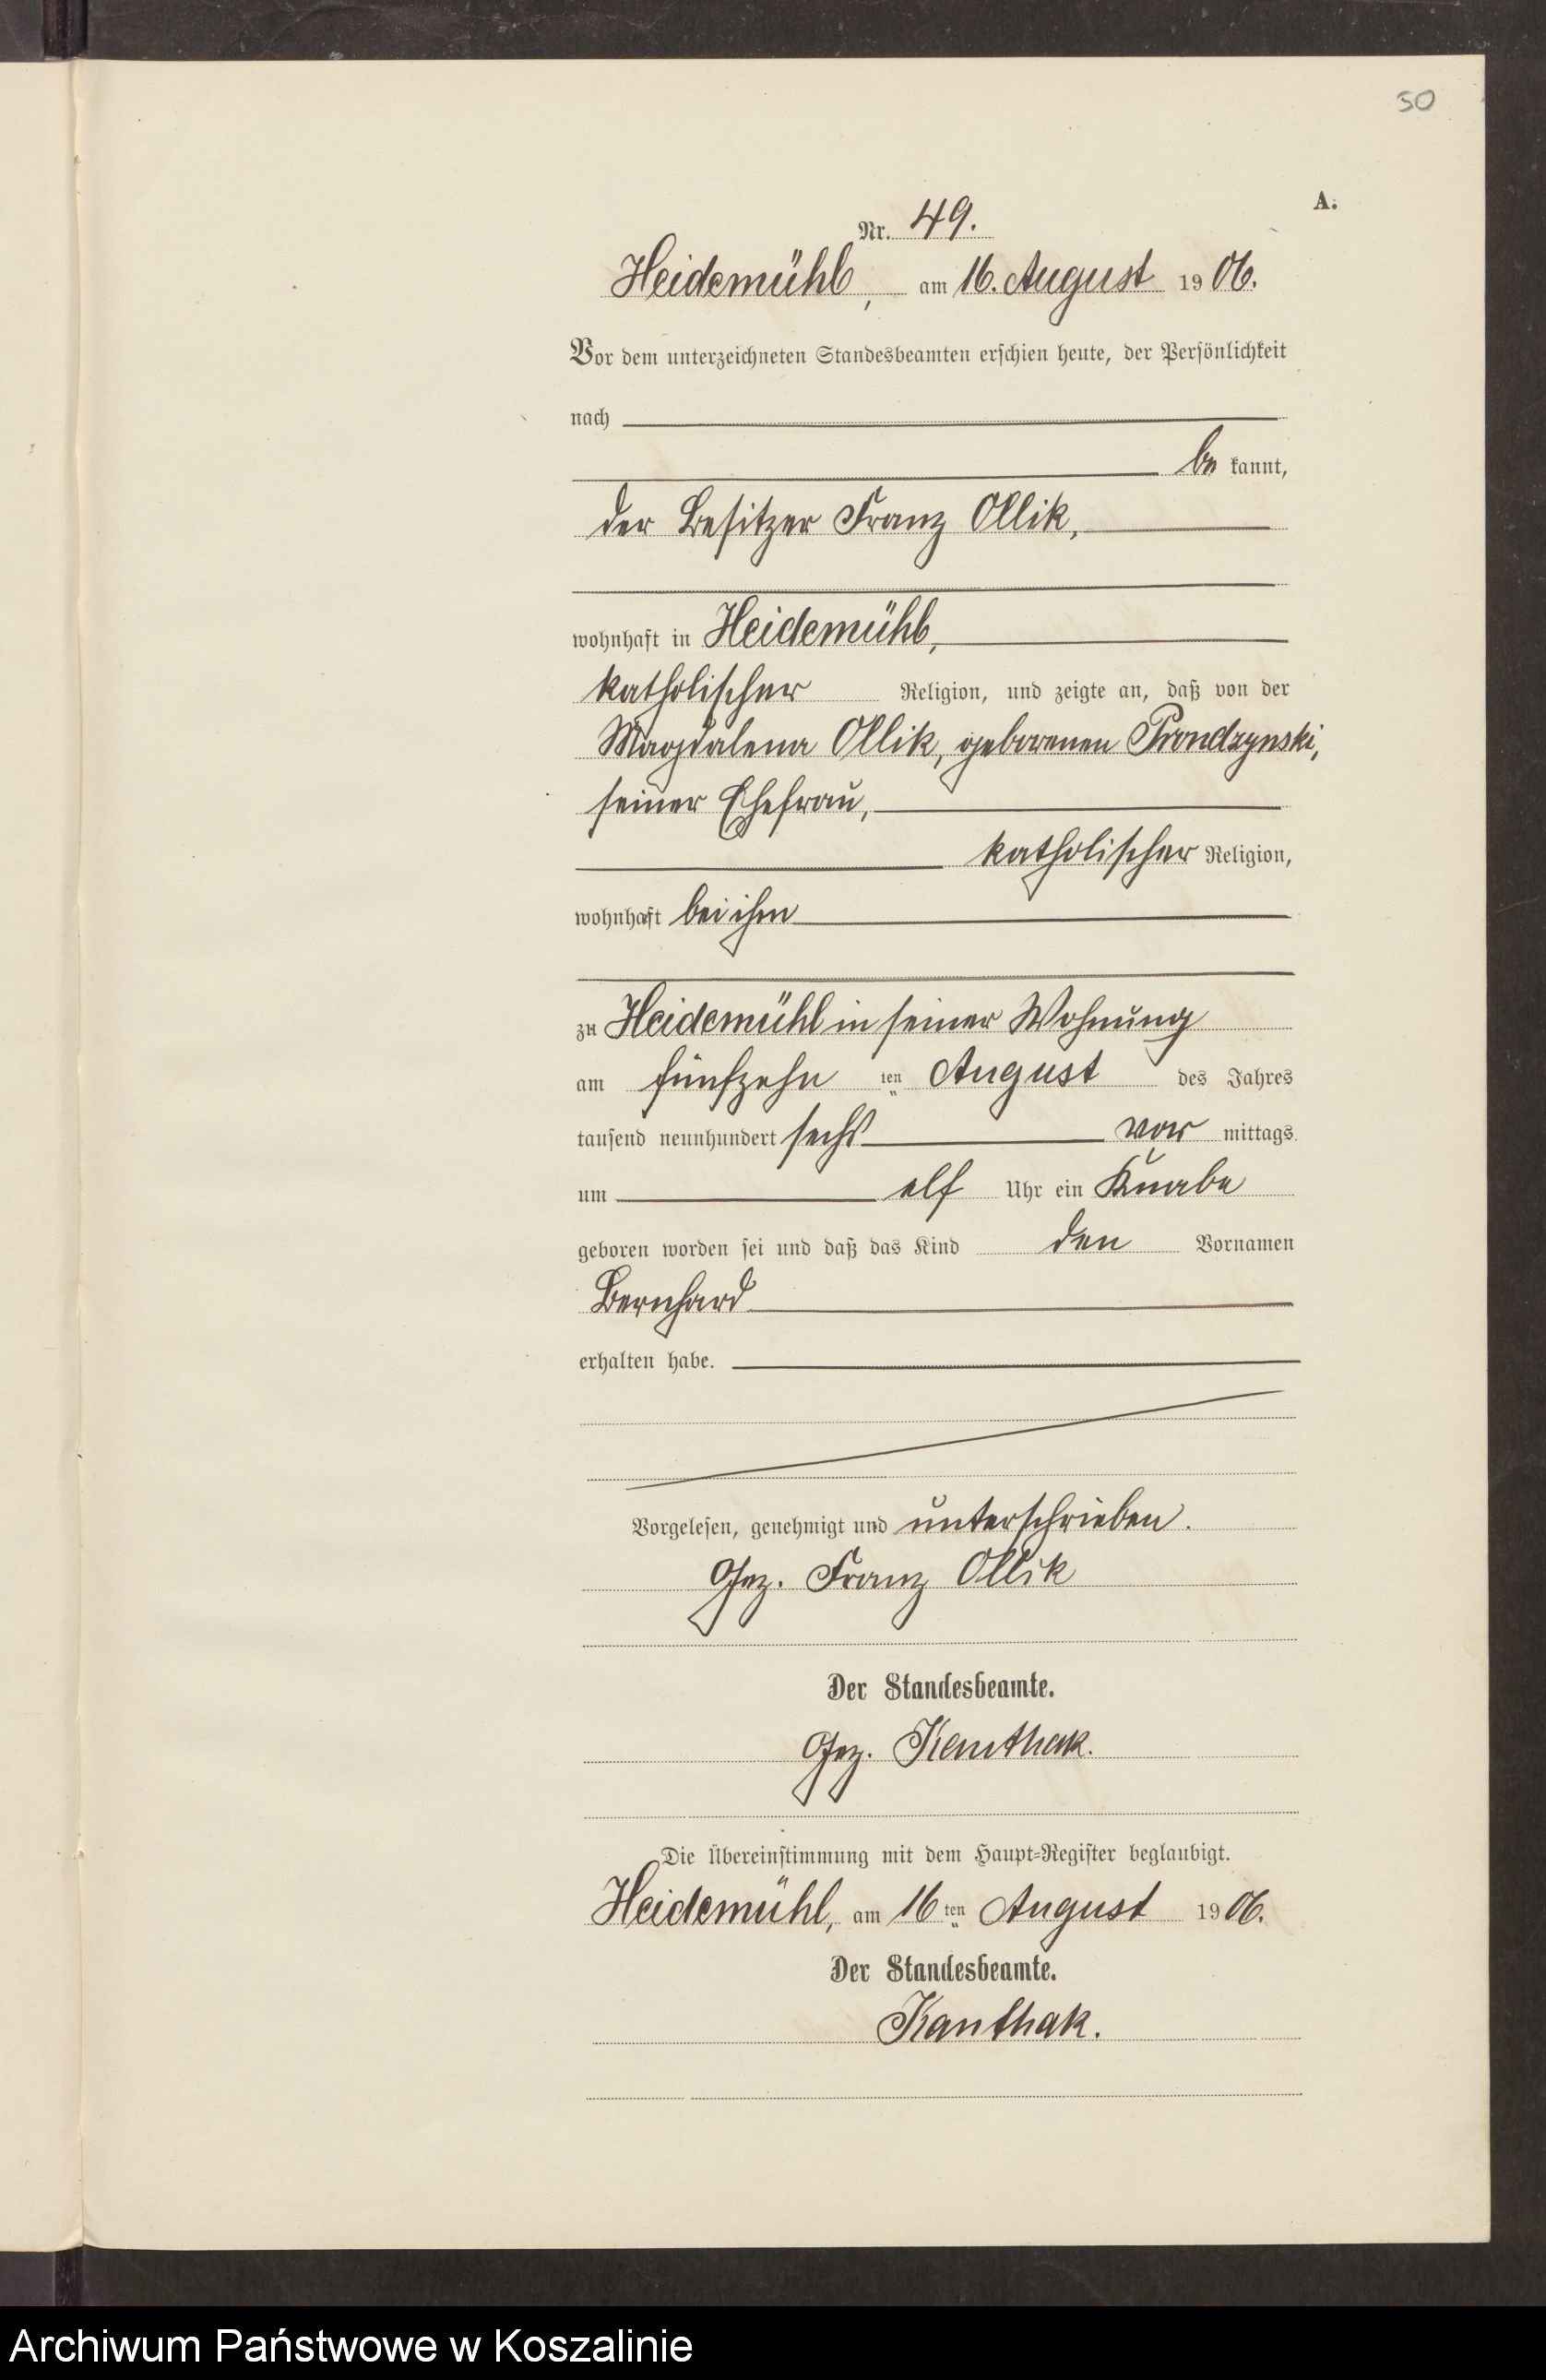 50
A.
Nr. 49.
Heidemühl, am 16. August 1906.
Vor dem unterzeichneten Standesbeamten erschien heute, der Persönlichkeit
nach
be kannt,
der Besitzer Franz Ollik,
wohnhaft in Heidemühl,
katholischer Religion, und zeigte an, daß von der
Magdalena Ollik, geborenen Prondzynski,
seiner Ehefrau,
katholischer Religion,
wohnhaft bei ihm
zu Heidemühl in seiner Wohnung
am fünfzehn ten August des Jahres
tausend neunhundert sechs vor mittags
um elf Uhr ein Knabe
geboren worden sei und daß das Kind den Vornamen
Bernhard
erhalten habe.
Vorgelesen, genehmigt und unterschrieben.
Gez. Franz Ollik
Der Standesbeamte.
Gez. Kanthak.
Die Übereinstimmung mit dem Haupt-Register beglaubigt.
Heidemühl, am 16 ten August 1906.
Der Standesbeamte.
Kanthak.
Archiwum Państwowe w Koszalinie